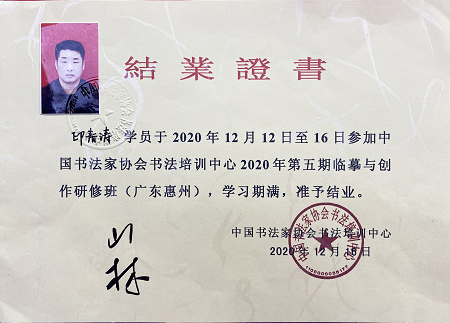 結業證書
印春涛 学员于2020年12月12日至16日参加中
国书法家协会书法培训中心2020年第五期临摹与创
作研修班（广东惠州），学习期满，准予结业。
中国书法家协会书法培训中心
2020年12月16日
中国书法家协会书法培训中心